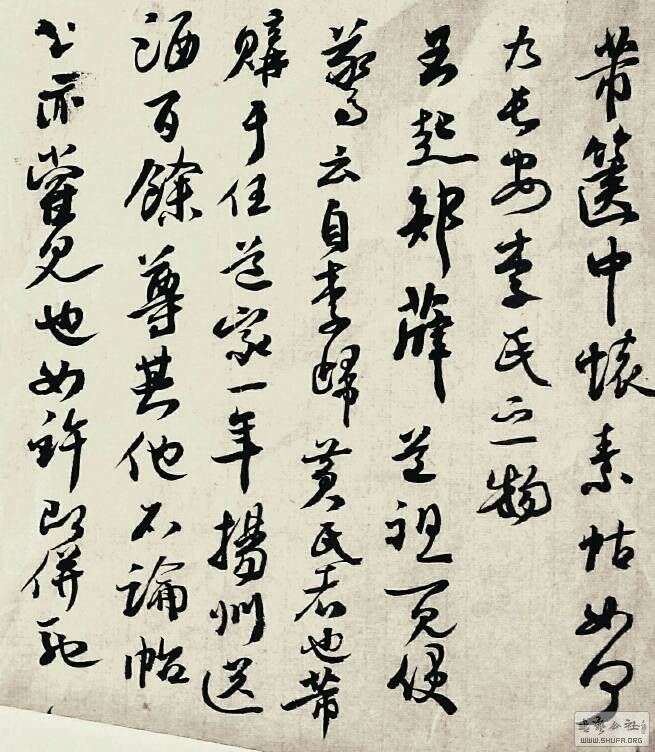 芾篋中懷素帖如何
乃長安李氏之物
王起部薛道祖一見便
驚云自李歸黃氏者也芾
購于任道家一年揚州送
酒百餘尊其他不論帖
公亦嘗見也如許即併馳
書藝公社
WWW.SHUFA.ORG